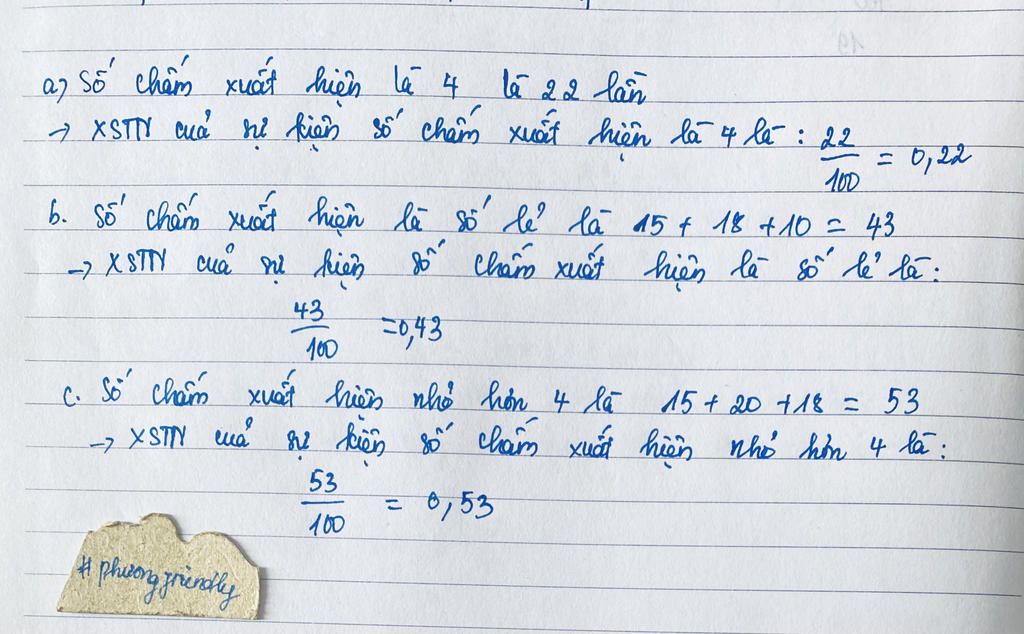 a) Số chấm xuất hiện là 4 là 22 lần
→ XSTN cuả sự kiện số chấm xuất hiện là 4 là: 22/100 = 0,22
b. Số chấm xuất hiện là số lẻ là 15 + 18 + 10 = 43
→ XSTN cuả sự kiện số chấm xuất hiện là số lẻ là:
43/100 = 0,43
c. Số chấm xuất hiện nhỏ hơn 4 là 15 + 20 + 18 = 53
→ XSTN cuả sự kiện số chấm xuất hiện nhỏ hơn 4 là:
53/100 = 0,53
# phuongfriendly